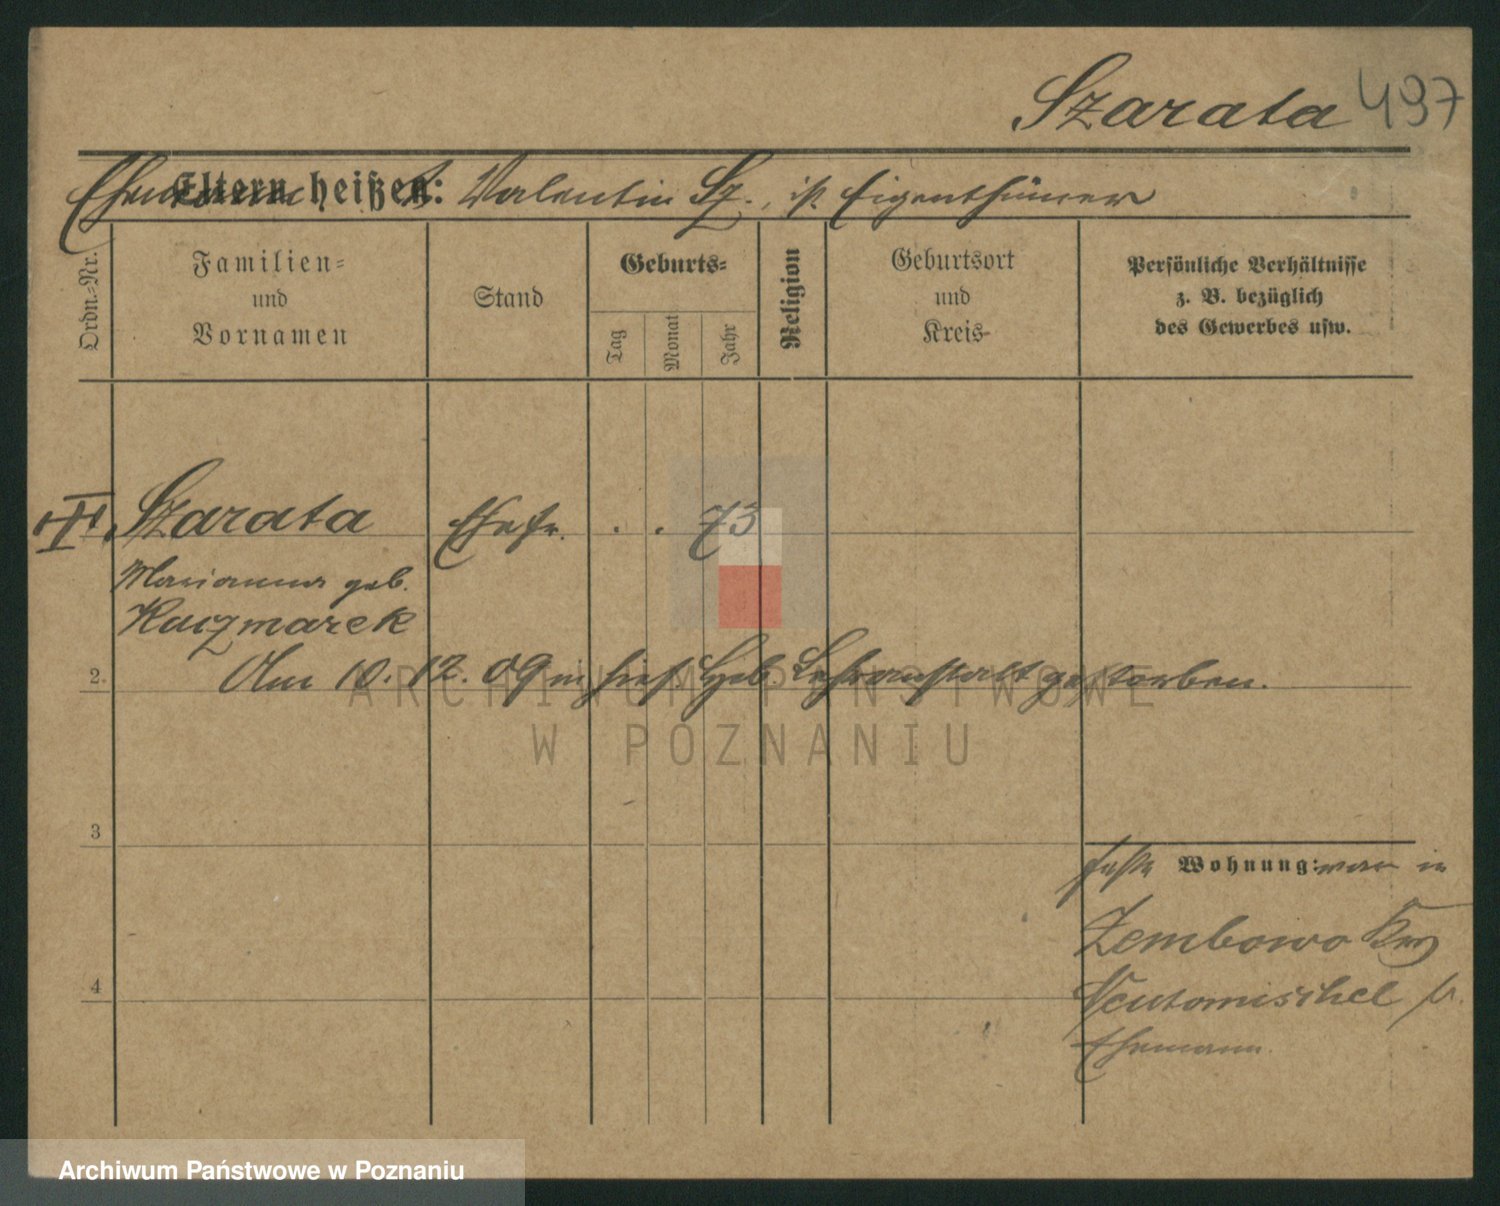 Szarata 497
Eltern heißen:
Ehemann Valentin Sz., ist Eigenthümer
Ordn.-Nr.
Familien-
und
Vornamen
Stand
Geburts-
Tag
Monat
Jahr
Religion
Geburtsort
und
Kreis-
Persönliche Verhältnisse
z. B. bezüglich
des Gewerbes usw.
Szarata Ehefr. . . 73
Marianna geb.
Kaczmarek
2.
Am 10. 12. 09 in hies. Heb. Lehranstalt gestorben.
ARCHIWUM PAŃSTWOWE
W POZNANIU
3
Wohnung: war in
Zembowo Krs
4
Neutomischel b.
Ehemann.
Archiwum Państwowe w Poznaniu